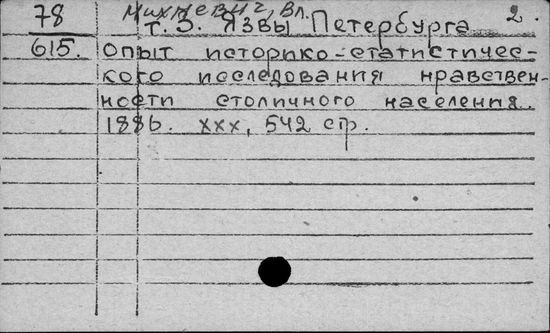 Михневич, Вл.
78 т. 3. Язвы Петербурга 2.
615. опыт историко-статистичес-
кого исследования нравствен-
ности столичного населения.
1886. XXX, 542 стр.